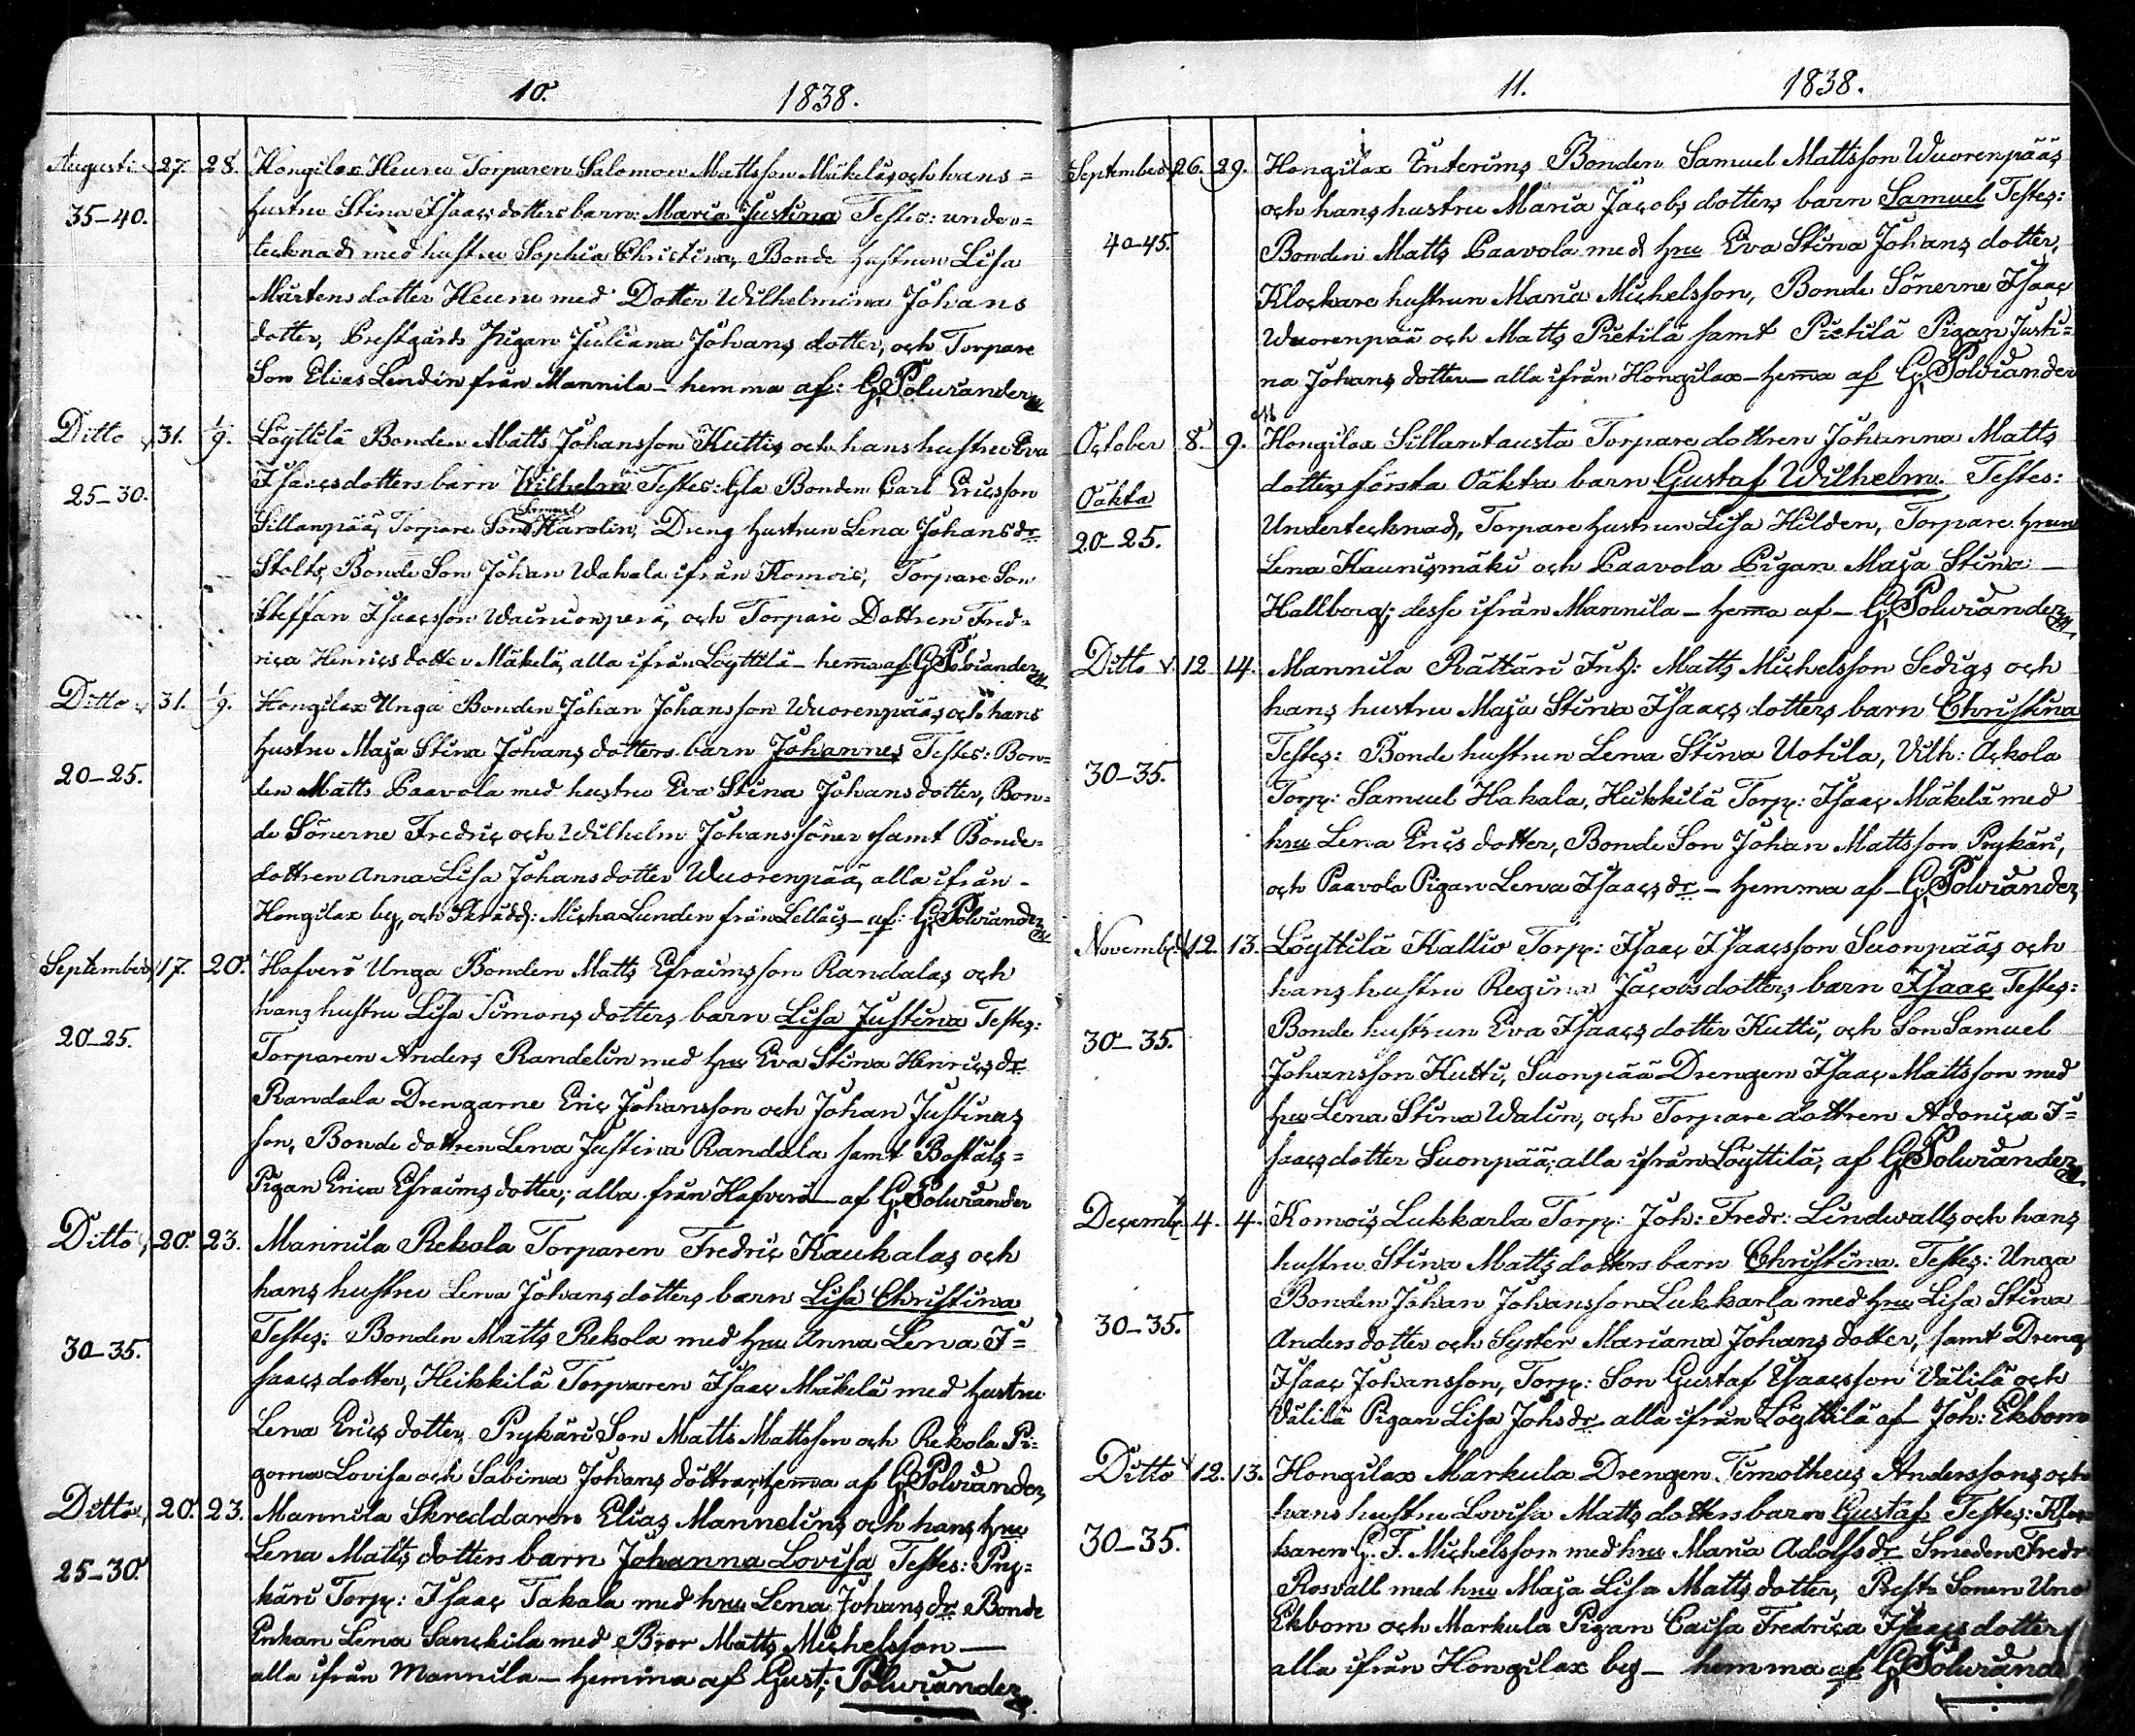 10.
1838.
Augusti 27. 28. Hongilax Heuru Torparen Salomon Mattsson Mäkeläs och hans=
35-40. hustru Stina Isaacs dotters barn: Maria Justina Testes: under=
tecknad med hustru Sophia Christina, Bonde hustrun Lisa
Mårtens dotter Heuru med Dotter Wilhelmina Johans
dotter, Prestgårds Pigan Juliana Johans dotter, och Torpare
Son Elias Lendin från Mannila - hemma af: G. Polviander
Ditto 31. 1/9. Löyttilä Bonden Matts Johansson Kuttis och hans hustru Eva
25-30. Isaacsdotters barn Wilhelm Testes: Gla Bonden Carl Ericsson
Sillanpää, Torpare Son Samuel Karolin, Dreng hustrun Lena Johansdr
Stolts, Bonde Son Johan Wahala ifrån Komois, Torpare Son
Steffan Isaacsson Wainionperä, och Torpare Dottren Fred=
rica Henrics dotter Mäkelä, alla ifrån Löyttilä - hemma af G. Polviander
Ditto 31. 1/9. Hongilax Unga Bonden Johan Johansson Wuorenpääs och hans
hustru Maja Stina Johans dotters barn Johannes Testes: Bon=
20-25. den Matts Paavola med hustru Eva Stina Johans dotter, Bon=
de Sönerne Fredric och Wilhelm Johanssöner samt Bonde=
dottren Anna Lisa Johans dotter Wuorenpää, alla ifrån -
Hongilax by, och Skrädd: Micha Lunden från Lellais - af: G. Polviander
September 17. 20. Hafverö Unga Bonden Matts Efraimsson Randalas och
hans hustru Lisa Simons dotters barn Lisa Justina Testes:
20-25. Torparen Anders Randelin med hru Eva Stina Henricsdr
Randala Drengarne Eric Johansson och Johan Justinas
son, Bonde dottren Lena Justina Randala samt Bostäls=
Pigan Erica Efraims dotter; alla från Hafverö - af G. Polviander
Ditto 20. 23. Mannila Rekola Torparen Fredric Kaukalas och
hans hustru Lena Johans dotters barn Lisa Christina
30-35. Testes: Bonden Matts Rekola med hru Anna Lena I=
saacs dotter, Heikkilä Torparen Isaac Mäkelä med hustru
Lena Erics dotter, Prykäri Son Matts Mattsson och Rekola Pi=
gorna Lovisa och Sabina Johans döttrar, hemma af G. Polviander
Ditto 20. 23. Mannila Skreddaren Elias Mannelins och hans hru
25-30. Lena Matts dotters barn Johanna Lovisa Testes: Pry=
käri Torp: Isaac Takala med hru Lena Johans dr Bonde
Enkan Lena Sanckila med Bror Matts Michelsson -
alla ifrån Mannila - hemma af Gust: Polviander
11.
1838.
September 26. 29. Hongilax Enterims Bonden Samuel Mattsson Wuorenpääs
och hans hustru Maria Jacobs dotters barn Samuel Testes:
40-45. Bonden Matts Paavola med hru Eva Stina Johans dotter,
Klockare hustrun Maria Michelsson, Bonde Sönerne Isaac
Wuorenpää och Matts Pietilä samt Pietilä Pigan Justi=
na Johans dotter - alla ifrån Hongilax - hemma af G. Polviander
October 8. 9. Hongilax Sillantausta Torpare dottren Johanna Matts
Oäkta dotters första Oäkta barn Gustaf Wilhelm. Testes:
20-25. Undertecknad, Torpare hustrun Lisa Hilden, Torpare hrun
Lena Kaunismäki och Paavola Pigan Maja Stina -
Hallberg; desse ifrån Mannila - hemma af - G. Polviander
Ditto 12 14. Mannila Rättäri Inh: Matts Michelsson Sedigs och
hans hustru Maja Stina Isaacs dotters barn Christina
30-35. Testes: Bonde hustrun Lena Stina Uotila, Vilh: Ackola
Torp: Samuel Hakala, Heikkilä Torp: Isaac Mäkelä med
hru Lena Erics dotter, Bonde Son Johan Mattsson Prykäri,
och Paavola Pigan Lena Isaacs dr - hemma af - G. Polviander
Novemb: 12. 13. Löyttilä Kallio Torp: Isaac Isaacsson Suonpääs och
hans hustru Regina Jacobs dotters barn Isaac Testes:
30-35. Bonde hustrun Eva Isaacs dotter Kutti, och Son Samuel
Johansson Kutti, Suonpää Drengen Isaac Mattsson med
hru Lena Stina Walin, och Torpare dottren Adonica I=
saacs dotter Suonpää; alla ifrån Löyttilä, af G. Polviander
Decemb: 4. 4. Komois Lukkarla Torp: Joh: Fredr: Lindwalls och hans
hustru Stina Matts dotters barn Christina. Testes: Unga
30-35. Bonden Johan Johansson Lukkarla med hru Lisa Stina
Anders dotter och Syster Mariana Johans dotter, samt Dreng
Isaac Johansson, Torp: Son Gustaf Isaacsson Välilä och
Välilä Pigan Lisa Johsdr alla ifrån Löyttilä af Joh: Ekbom
Ditto 12. 13. Hongilax Markula Drengen Timotheus Anderssons och
hans hustru Lovisa Matts dotters barn Gustaf Testes: Kloc=
30-35. karen G. F. Michelsson med hru Maria Adolfsdr Smeden Fredr
Rosvall med hru Maja Lisa Matts dotter, Prest Sonen Uno
Ekbom och Markula Pigan Caisa Fredrica Isaacs dotter
alla ifrån Hongilax by - hemma af G. Polviander